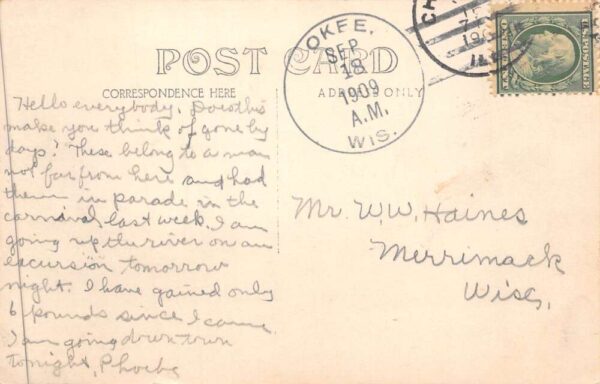 POST CARD
CORRESPONDENCE HERE
ADDRESS ONLY
OKEE.
SEP
18
1909
A.M.
WIS.
CH
ILL
Hello everybody, Does this
make you think of gone by
days? These belong to a man
not far from here and had
them in parade in the
carnival last week. I am
going up the river on an
excursion tomorrow
night. I have gained only
6 pounds since I came.
I am going down town
tonight, Phoebe
Mr. W.W. Haines
Merrimack
Wisc,